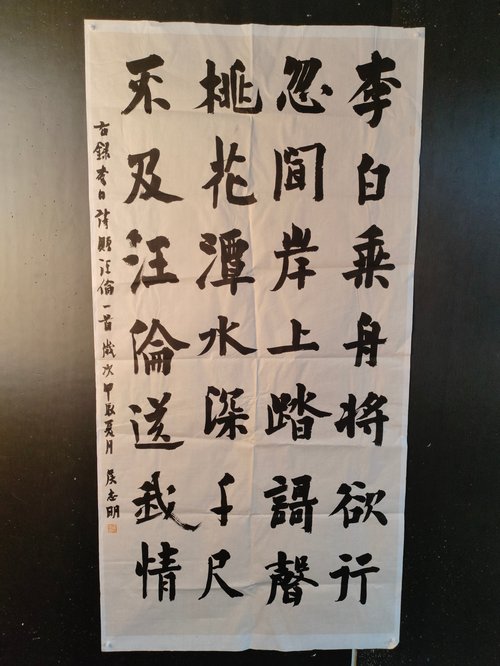 李白乘舟將欲行
忽聞岸上踏謌聲
桃花潭水深千尺
不及汪倫送我情
右録李白詩贈汪倫一首歲次甲辰夏月 志明